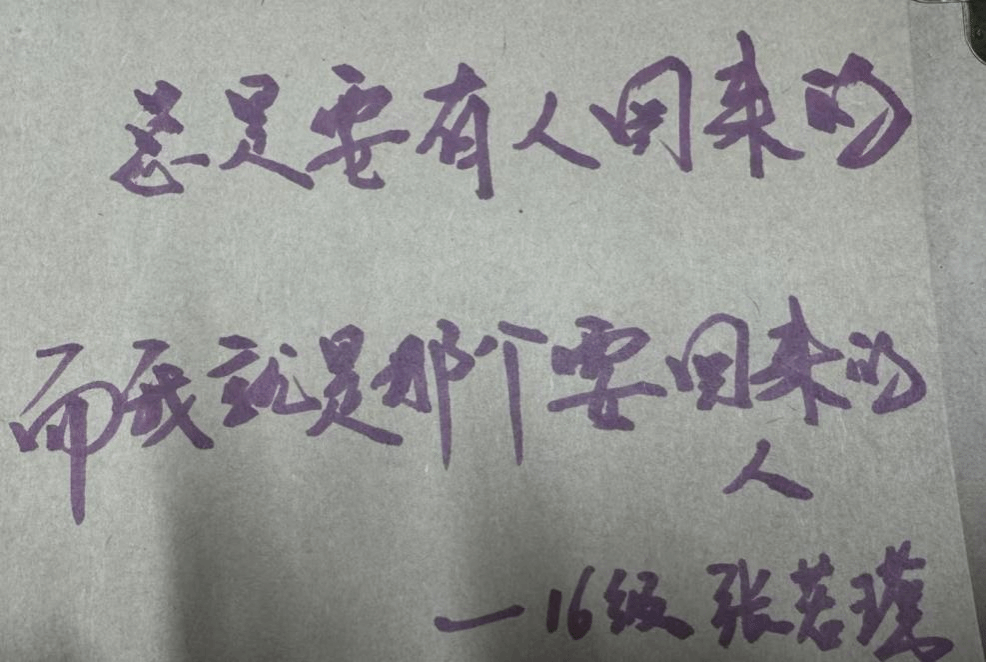 总是要有人回来的
而我就是那个要回来的
人
—16级 张若